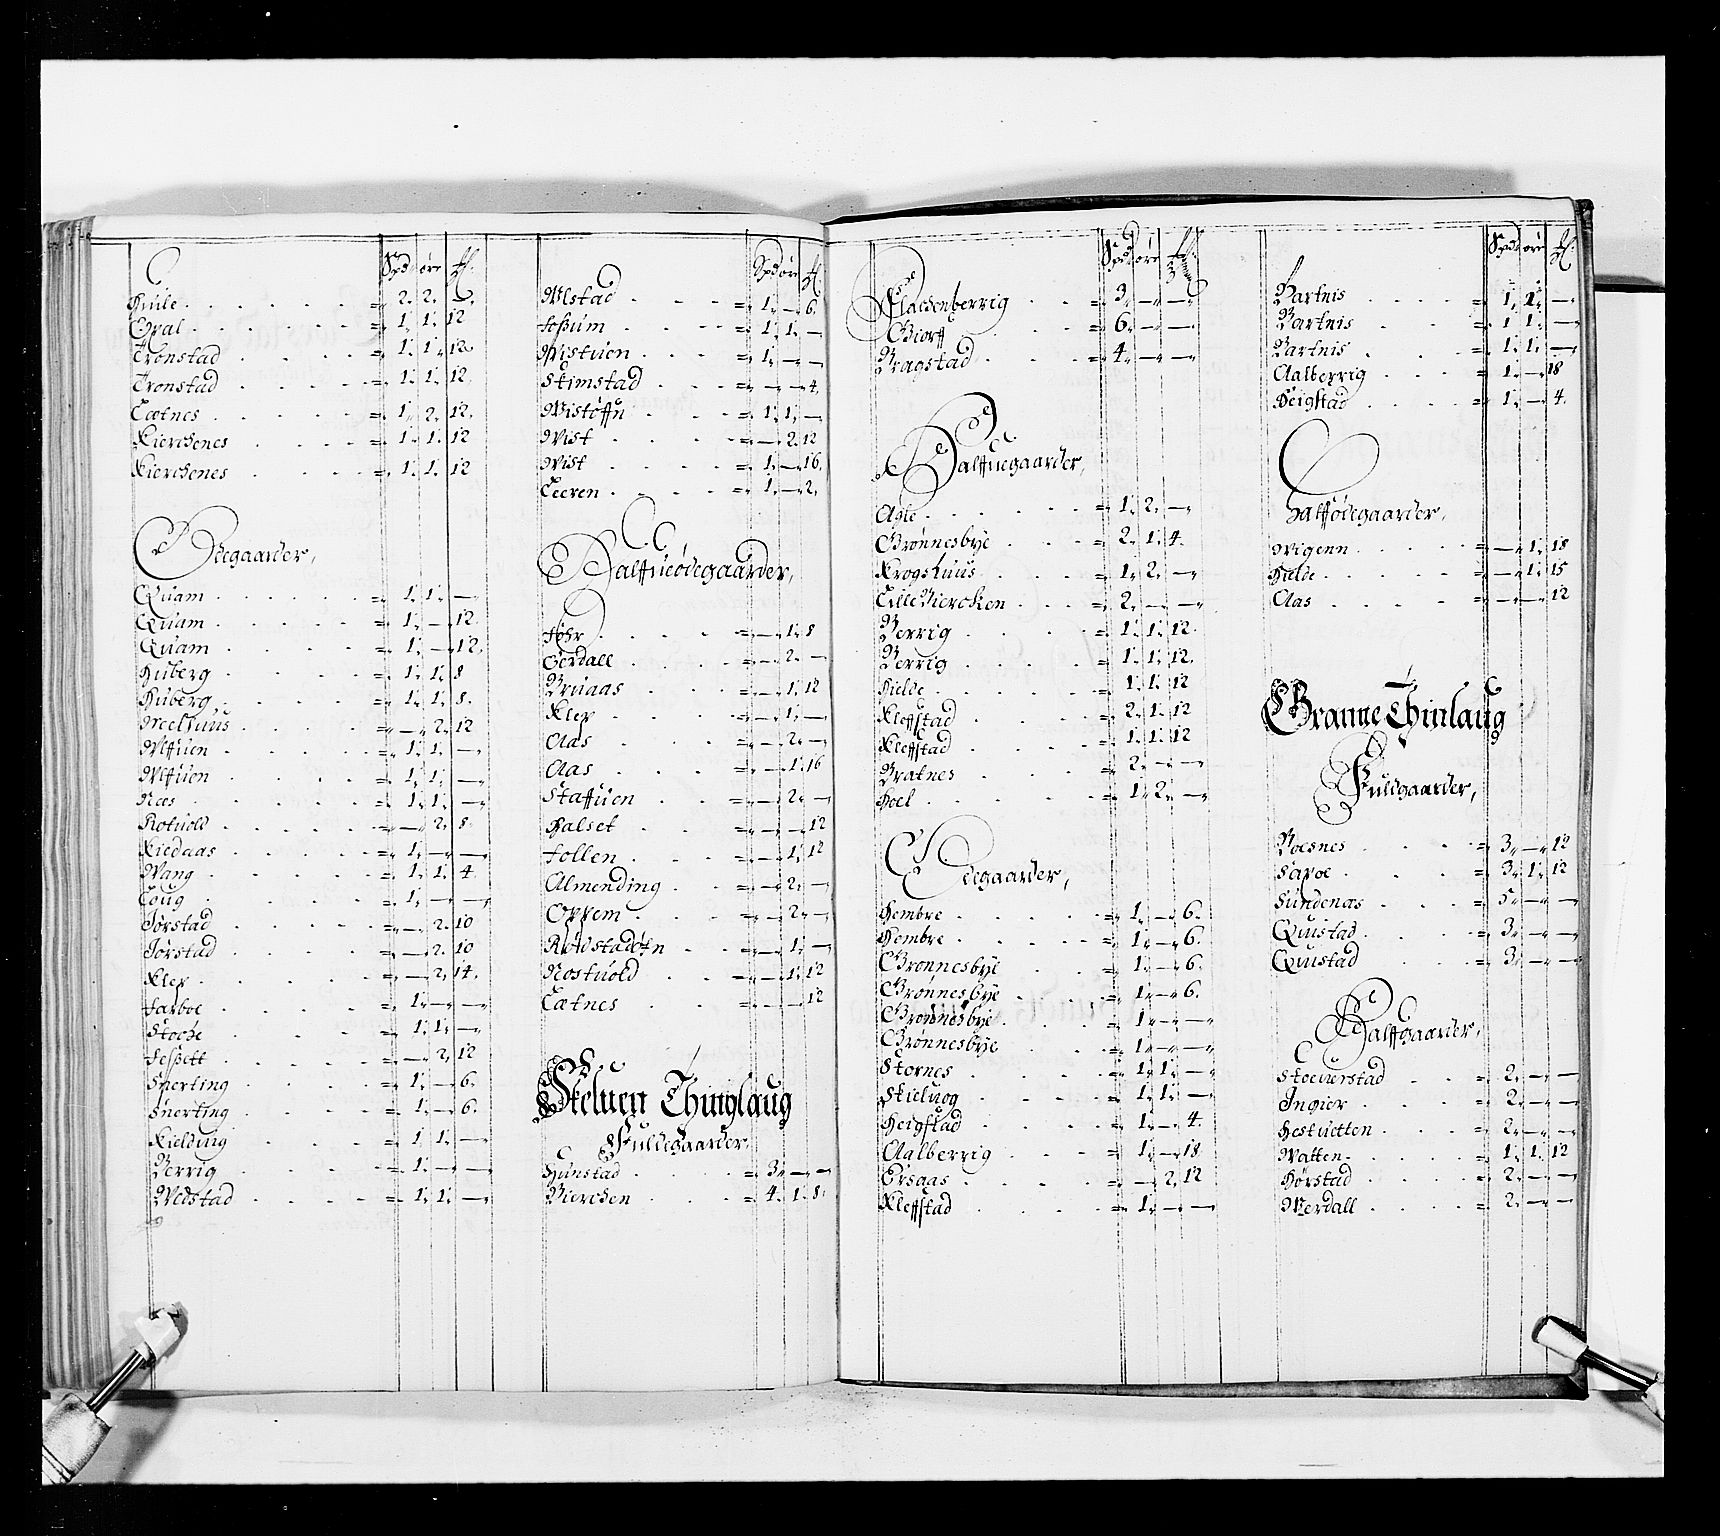 Spd øre ₰.
Huile . . . . . . = 2. 2. —
Opal . . . . . = 1. 1. 12
Tronstad . . . . = 1. 1. 12
Tronstad . . . . = 1. 1. 12
Lætnes . . . . = 1. 2. 12.
Kierckenes . . . . = 1. 1. 12
Kierckenes . . . . = 1. 1. 12
Ødegaarder,
Quam . . . . . . = 1. 1. —
Quam . . . . . = 1. — 12.
Quam . . . . . = 1. — 12.
Huberg . . . . . = 1. 1. 8
Huberg . . . . . = 1. 1. 8.
Meelhuus . . . . = — 2. 12
Wffuen . . . . . = 1. 1. —
Wffuen . . . . . = 1. 1. —
Næs . . . . . = 1. 1. —
Rotuold . . . . . = — 2. 8.
Kiedaas . . . . . = 1. — —
Wang . . . . . = 1. 1. 4.
Loug . . . . . = 1. — —
Jørstad . . . . . = — 2. 10
Jørstad . . . . . = — 2. 10
Klep . . . . . = — 2. 14.
Farboe . . . . . = 1. — —
Stocke . . . . . = 1. 1. —
. . . . . = — 2. 12
Snerting . . . . = 1. — 6.
Snerting . . . . = 1. — 6.
Kielding . . . . = 1. 1. —
Berrig . . . . . = 1. — —
Wedstad . . . . = 1. 1. —
Spd øre ₰
Wlstad . . . = 1. — 6.
Fossum . . . . = 1. 1. —
Wistuen . . . . = 1. — —
Skimstad . . . . = — — 4.
Wistøffn . . . . = 1. 1. —
Wist . . . . = — 2. 12
Wist . . . . = 1. — 16.
Leeren . . . . = 1. — 2.
Halffueødegaarder,
Føhr . . . . = — 1. 8
Oerdall . . . . = — 2. —
Bruaas . . . . = — 1. 12
Klep . . . . = — 1. —
Aas . . . . = — 2. —
Aas . . . . = — 1. 16
Staffuen . . . = — 2. —
Halset . . . . = — — 12
Follen . . . . = — 1. 12
Almending . . . = — 2. —
Oppem . . . . = — 2. —
= — 1. —
Nostuold . . . = — 1. 12
Lætnes . . . . = — — 12
Skeluen Thinglaug
Fuldegaarder,
Hunstad . . . . = 3. — —
Biercken . . . . = 4. 1. 8.
Spd øre ₰.
Flackenberrig . . = 3. — —
Giorff . . . . = 6. — —
Bragstad . . . . = 4. — —
Halffuegaarder,
Agle . . . . . = 1. 2. —
Grønnesbye . . . . = 2. 1. 4.
Krogshuus . . . . = 1. 2. —
LilleBiercken . . . = 2. — —
Berrig . . . . = 1. 1. 12.
Berrig . . . . = 1. 1. 12.
Hielde . . . . = 1. 1. 12
Kleffstad . . . . = 2. 1. 12
Kleffstad . . . . = 1. 1. 12
Bratnes . . . . = 2. — —
Hoel . . . . . = 1. 2. —
Ødegaarder,
Hembre . . . . . = 1. — 6.
Hembre . . . . . = 1. — 6.
Grønnesbye . . . . = 1. — 6.
Grønnesbye . . . . = 1. — 6.
Grønnesbye . . . . = 1. — —
Grønnesbye . . . . = 1. — —
Stornes . . . . . = 1. 1. —
Skieluog . . . . = 1. 1. —
Heigstad . . . . = 1. — 4.
Aalberrig . . . . = 1. — 18
Ersaas . . . . . = — 2. 12
Kleffstad . . . . = 1. — —
Spd øre ₰.
Bartnis . . . . = 1. 1. —
Bartnis . . . . = 1 1. —
Bartnis . . . . = 1. 1. —
Aalberrig . . . . = 1. — 18
Heigstad . . . . = 1. — 4.
Halffødegaarder,
Wigenn . . . . = — 1. 18
Hielde . . . . = — 1. 15
Aas . . . . = — — 12
Granne Thinlaug
Fuldgaarder,
Boesnes . . . . = 3. — 12
Sæxoe . . . . = 3. 1. 12
Sundenæs . . . = 5. — —
Quistad . . . . = 3. — —
Quistad . . . . = 3. — —
Halffgaarder,
Stoeuerstad . . . = 2. — —
Ingier . . . . = 2. — —
Hestuetten . . . = 2. — —
Watten . . . . = 1. 1. 12
Hørstad . . . . = 2. — —
Werdall . . . . = 2. — —